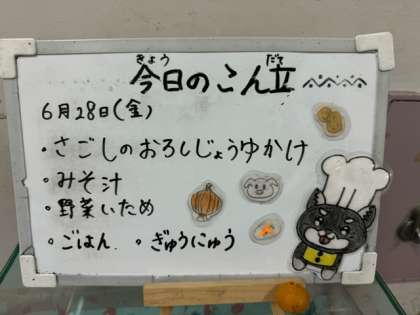 きょう だて
今日のこん立
6月28日(金)
・さごしのおろしじょうゆかけ
・みそ汁
・野菜いため
・ごはん ・ぎゅうにゅう